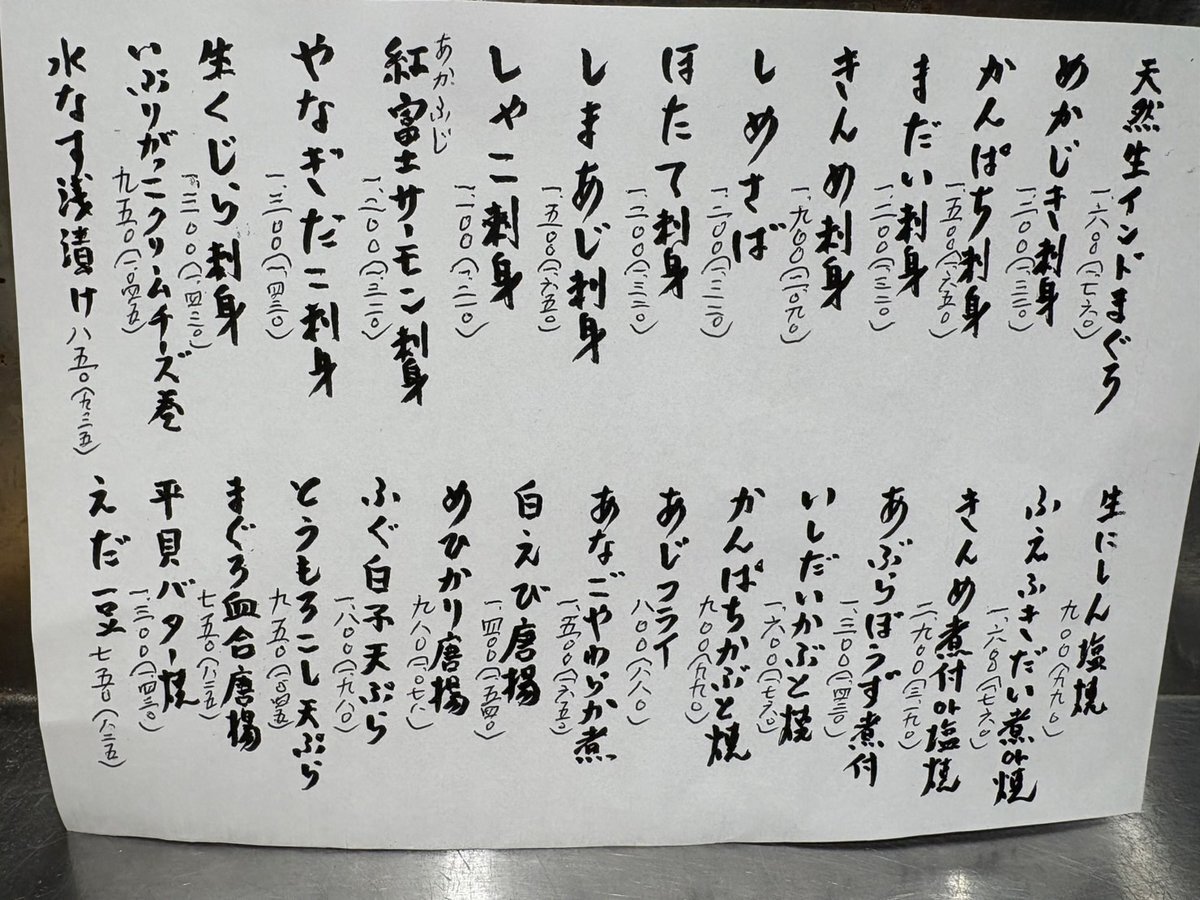 天然生インドまぐろ
一、六〇〇(一、七六〇)
めかじき刺身
一、二〇〇(一、三二〇)
かんぱち刺身
一、五〇〇(一、六五〇)
まだい刺身
一、二〇〇(一、三二〇)
きんめ刺身
一、九〇〇(二、〇九〇)
しめさば
一、二〇〇(一、三二〇)
ほたて刺身
一、二〇〇(一、三二〇)
しまあじ刺身
一、五〇〇(一、六五〇)
しゃこ刺身
一、一〇〇(一、二一〇)
あかふじ
紅富士サーモン刺身
一、二〇〇(一、三二〇)
やなぎだこ刺身
一、三〇〇(一、四三〇)
生くじら刺身
一、三〇〇(一、四三〇)
いぶりがっこクリームチーズ巻
九五〇(一、〇四五)
水なす浅漬け 八五〇(九三五)
生にしん塩焼
九〇〇(九九〇)
ふえふきだい煮or焼
一、六〇〇(一、七六〇)
きんめ煮付or塩焼
二、九〇〇(三、一九〇)
あぶらぼうず煮付
一、三〇〇(一、四三〇)
いしだいかぶと焼
一、六〇〇(一、七六〇)
かんぱちかぶと焼
九〇〇(九九〇)
あじフライ
八〇〇(八八〇)
あなごやわらか煮
一、五〇〇(一、六五〇)
白えび唐揚
一、四〇〇(一、五四〇)
めひかり唐揚
九八〇(一、〇七八)
ふぐ白子天ぷら
一、八〇〇(一、九八〇)
とうもろこし天ぷら
九五〇(一、〇四五)
まぐろ血合唐揚
七五〇(八二五)
平貝バター焼
一、三〇〇(一、四三〇)
えだ豆 七五〇(八二五)